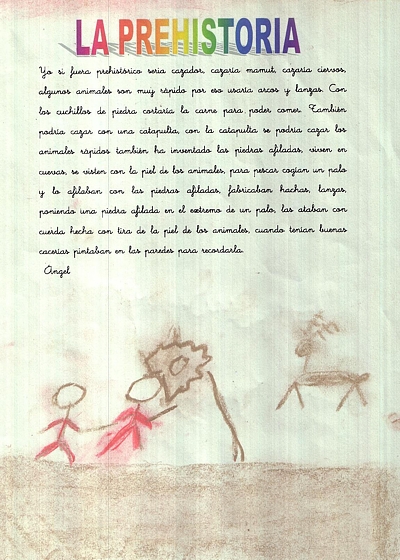 LA PREHISTORIA
Yo si fuera prehistórico sería cazador, cazaría mamut, cazaría ciervos,
algunos animales son muy rápido por eso usaría arcos y lanzas. Con
los cuchillos de piedra cortaría la carne para poder comer. También
podría cazar con una catapulta, con la catapulta se podría cazar los
animales rápidos también ha inventado las piedras afiladas, viven en
cuevas, se visten con la piel de los animales, para pescar cogían un palo
y lo afilaban con las piedras afiladas, fabricaban hachas, lanzas,
poniendo una piedra afilada en el extremo de un palo, las ataban con
cuerda hecha con tira de la piel de los animales, cuando tenían buenas
cacerías pintaban en las paredes para recordarla.
Ángel